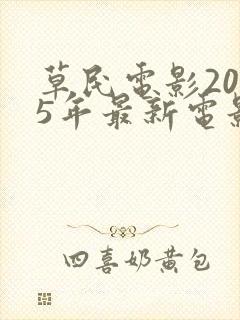 草民電影20
5年最新電影
四喜奶黄包